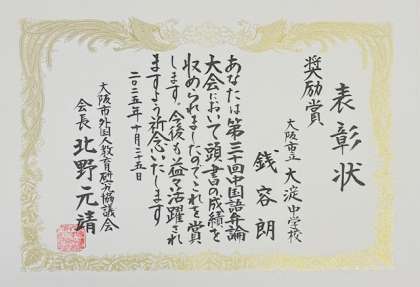 表彰状
奨励賞
大阪市立 大淀中学校
銭容朗
あなたは第三十回中国語弁論
大会において頭書の成績を
収められましたのでこれを賞
します。今後も益々活躍され
ますよう祈念いたします
二〇二五年十月二十五日
大阪市外国人教育研究協議会
会長 北野元靖